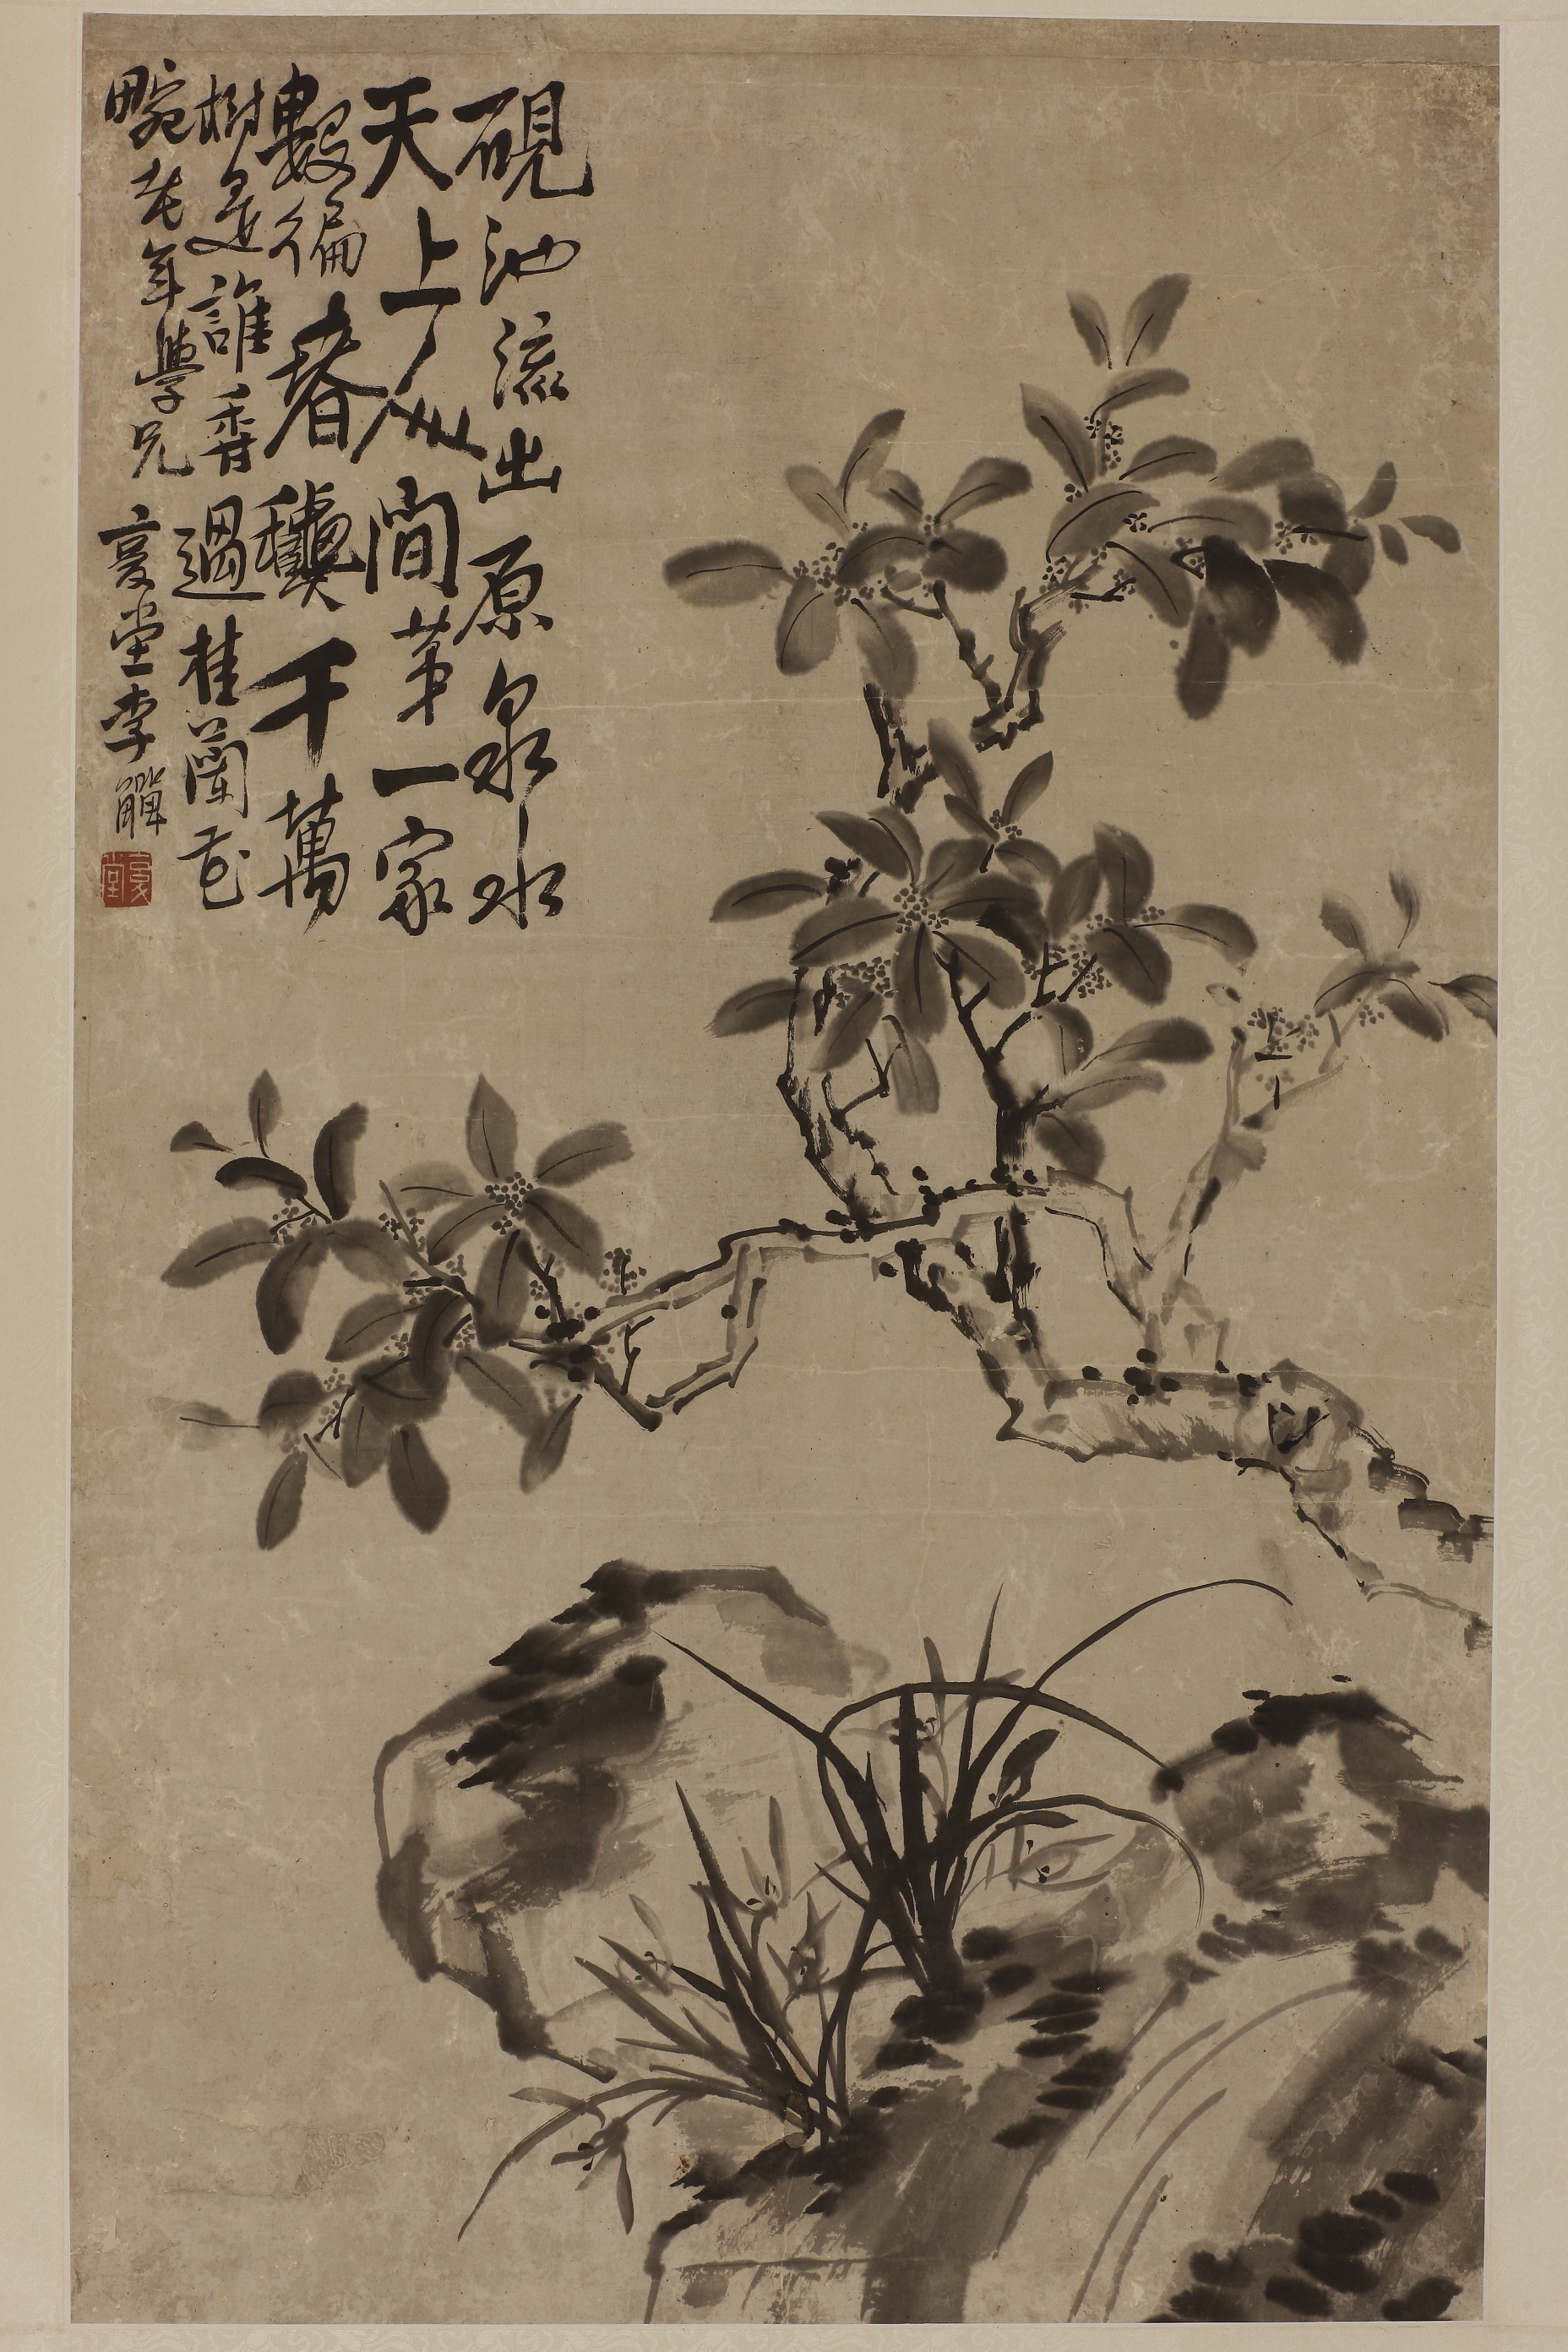 硯池流出原泉水
天上人間苐一家
數徧春穠千萬
樹是誰香過桂蘭花
畹老年學兄 复堂李觶
复堂